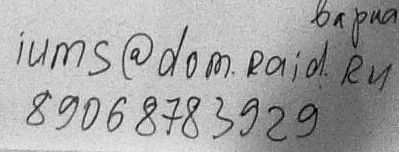 iums@dom.raid.Ru
89068783929